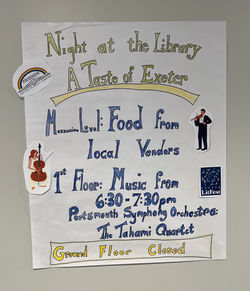 Night at the Library
A Taste of Exeter
Mezzanine Level: Food from
local Vendors
1st Floor: Music from
6:30-7:30pm
Portsmouth Symphony Orchestra:
The Tahami Quartet
LitFest
Ground Floor Closed